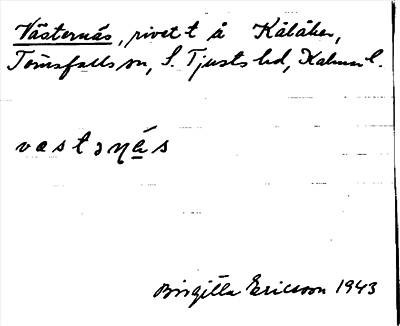 Västernäs, rivet t å Kålåker,
Törnsfalls sn, S. Tjusts hd, Kalmar l.
vastəŋás
Birgitta Ericsson 1943